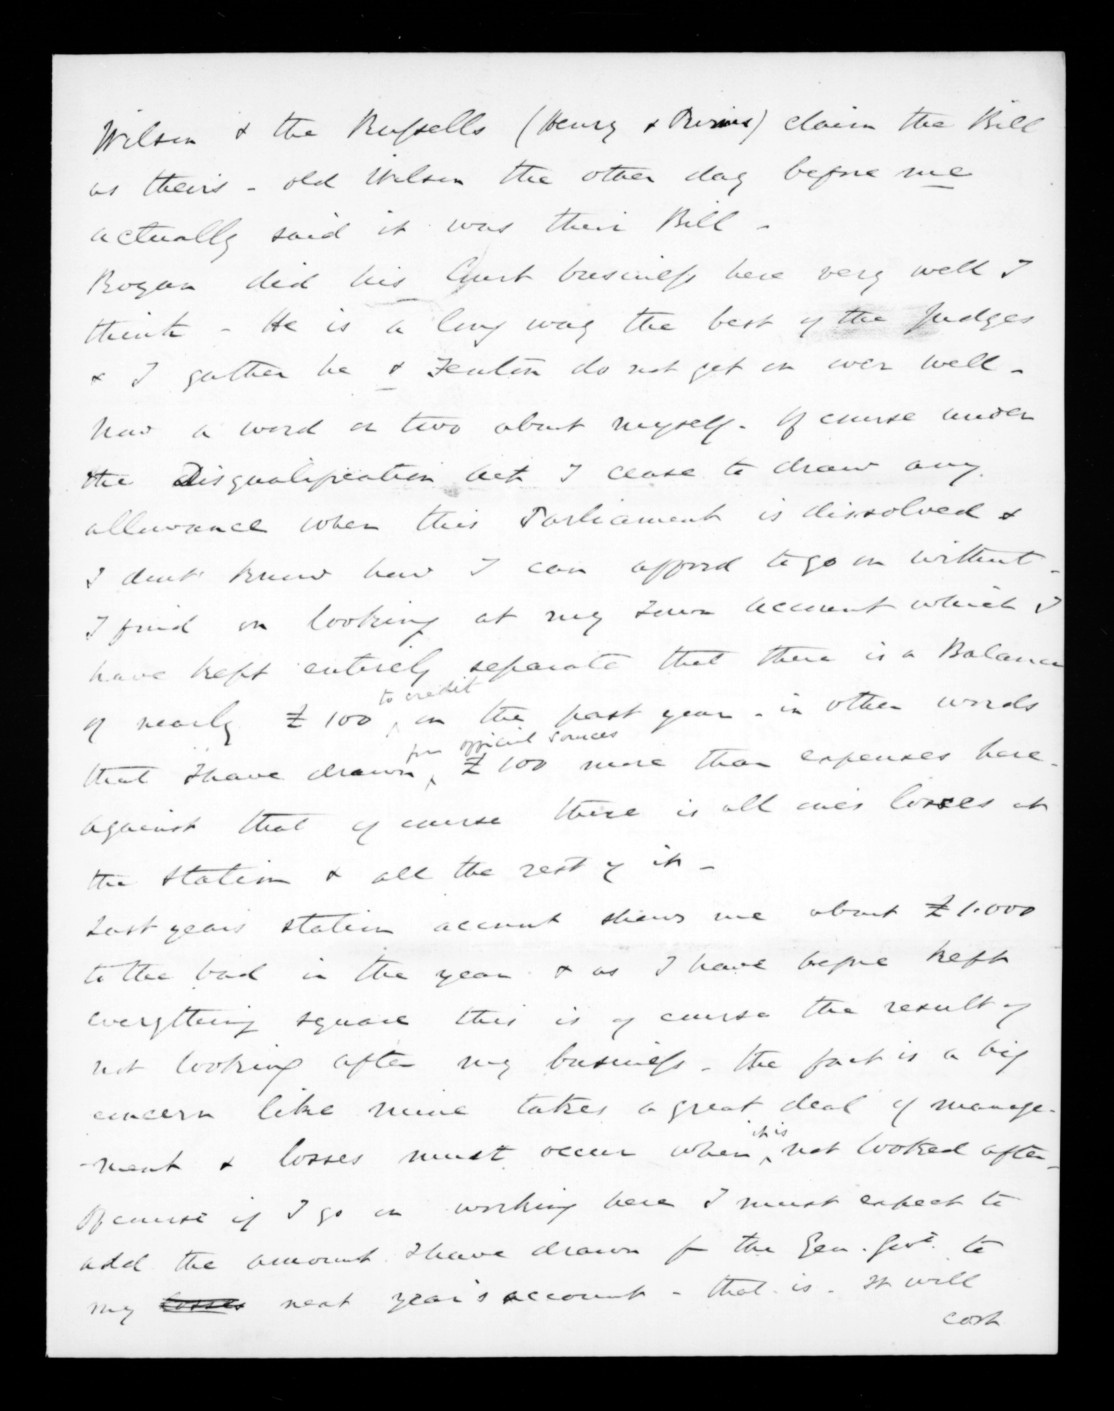 Wilson & the Russells (Henry & Purvis) claim the Bill
as theirs - old Wilson the other day before me
actually said it was their Bill -
Rogan did his Court business here very well I
think - He is a long way the best of the Judges
& I gather he & Fenton do not get on over well -
Now a word or two about myself - Of course under
the Disqualification Act I cease to draw any
allowance when this Parliament is dissolved &
I dont know how I can afford to go on without -
I find on looking at my Town account which I
have kept entirely separate that there is a Balance
of nearly £100 to credit on the past year - in other words
that I have drawn fm official sources £100 more than expenses here -
against that of course there is all one's losses at
the station & all the rest of it -
Last years station account shews me about £1.000
to the bad in the year & as I have before kept
everything square this is of course the result of
not looking after my business - the fact is a big
concern like mine takes a great deal of manage-
-ment & losses must occur when it is not looked after -
Of course if I go on working here I must expect to
add the amount I have drawn fm the Gen. Govt. to
my losses next year's account - that is - It will
cost